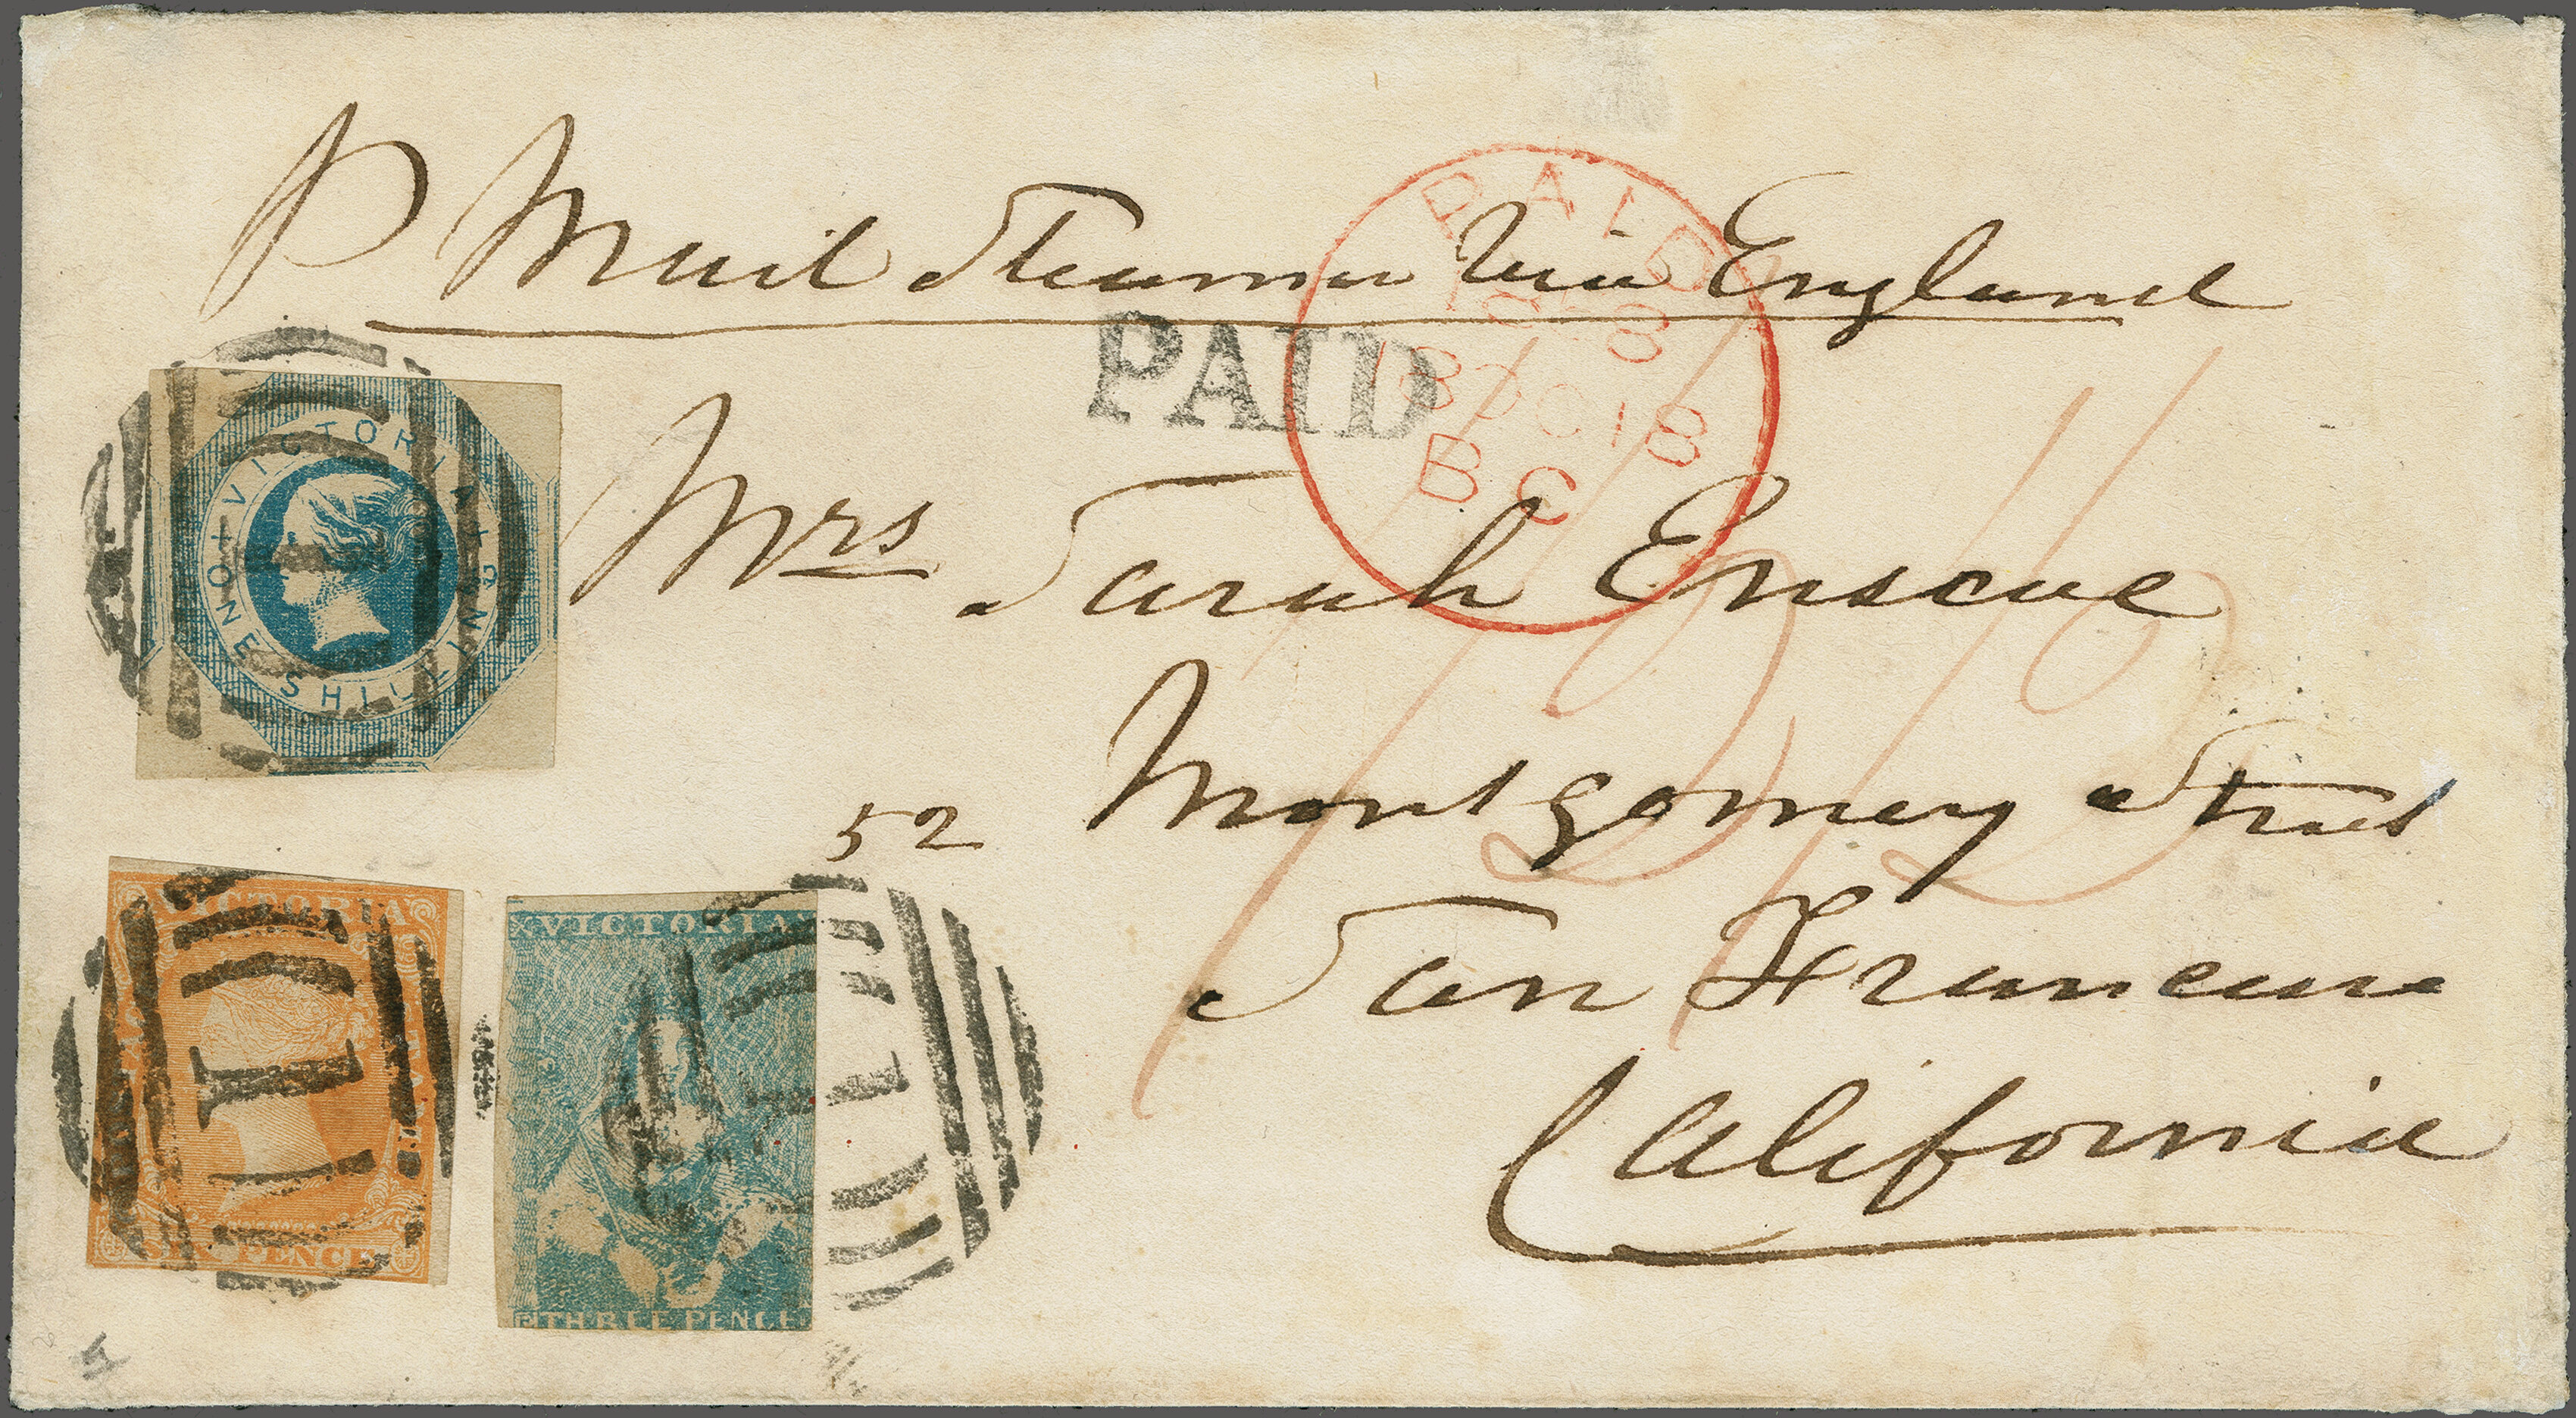 P Mail Steamer Via England
PAID
PAID
18 58
OC 18
B C
VICTORIA
ONE SHILLING
Mrs Sarah Enscoe
52 Montgomery Street
San Francisco
California
VICTORIA
SIX PENCE
1
VICTORIA
THREE PENCE
1